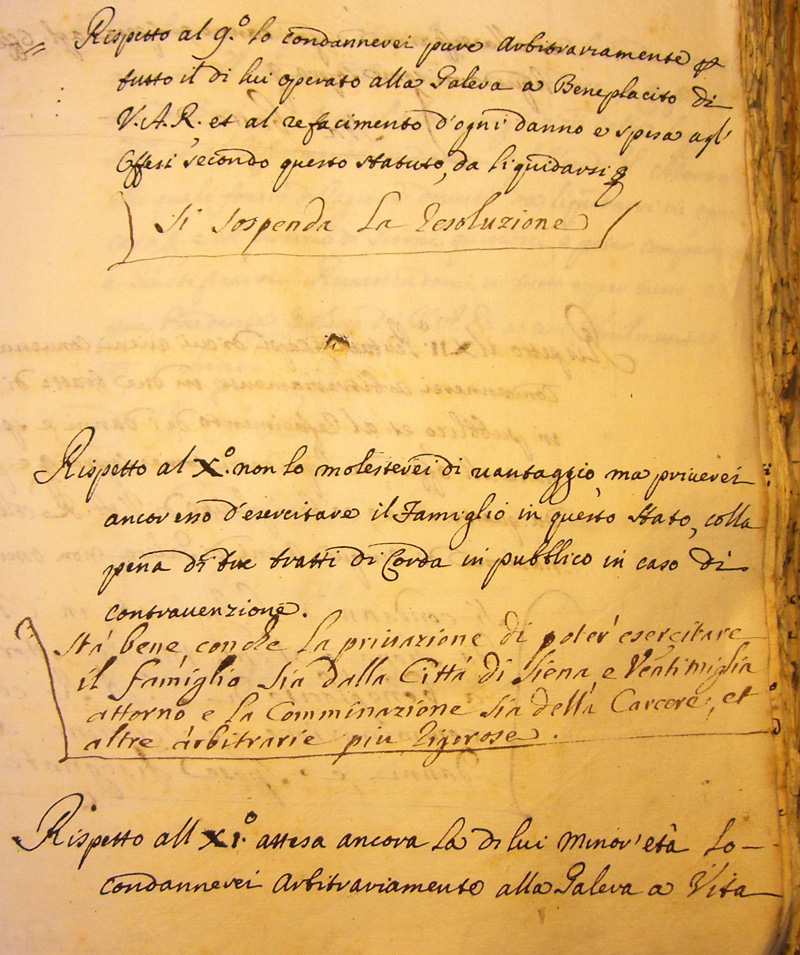 Rispetto al 9.º lo condannerei pure Arbitrariamente p
tutto il di lui operato alla Galera a Beneplacito di
V.A.R. et al refacimento d'ogni danno e spesa agl'
Offesi secondo questo statuto, da liquidarsi
Si Sospenda La Resoluzione
Rispetto al X.º non lo molesterei di vantaggio, ma priverei
ancor esso d'esercitare il Famiglio in questo Stato, colla
pena di due tratti di Corda in pubblico in caso di
contravenzione.
Stà bene, con che la privazione di poter' esercitare
il famiglio sia dalla Città di Siena, e Ventimiglia
attorno e la Comminazione sia della Carcere, et
altre arbitrarie piu Rigorose.
Rispetto all XI.º attesa ancora La di lui Minor' età Lo
condannerei Arbitrariamente alla Galera a Vita